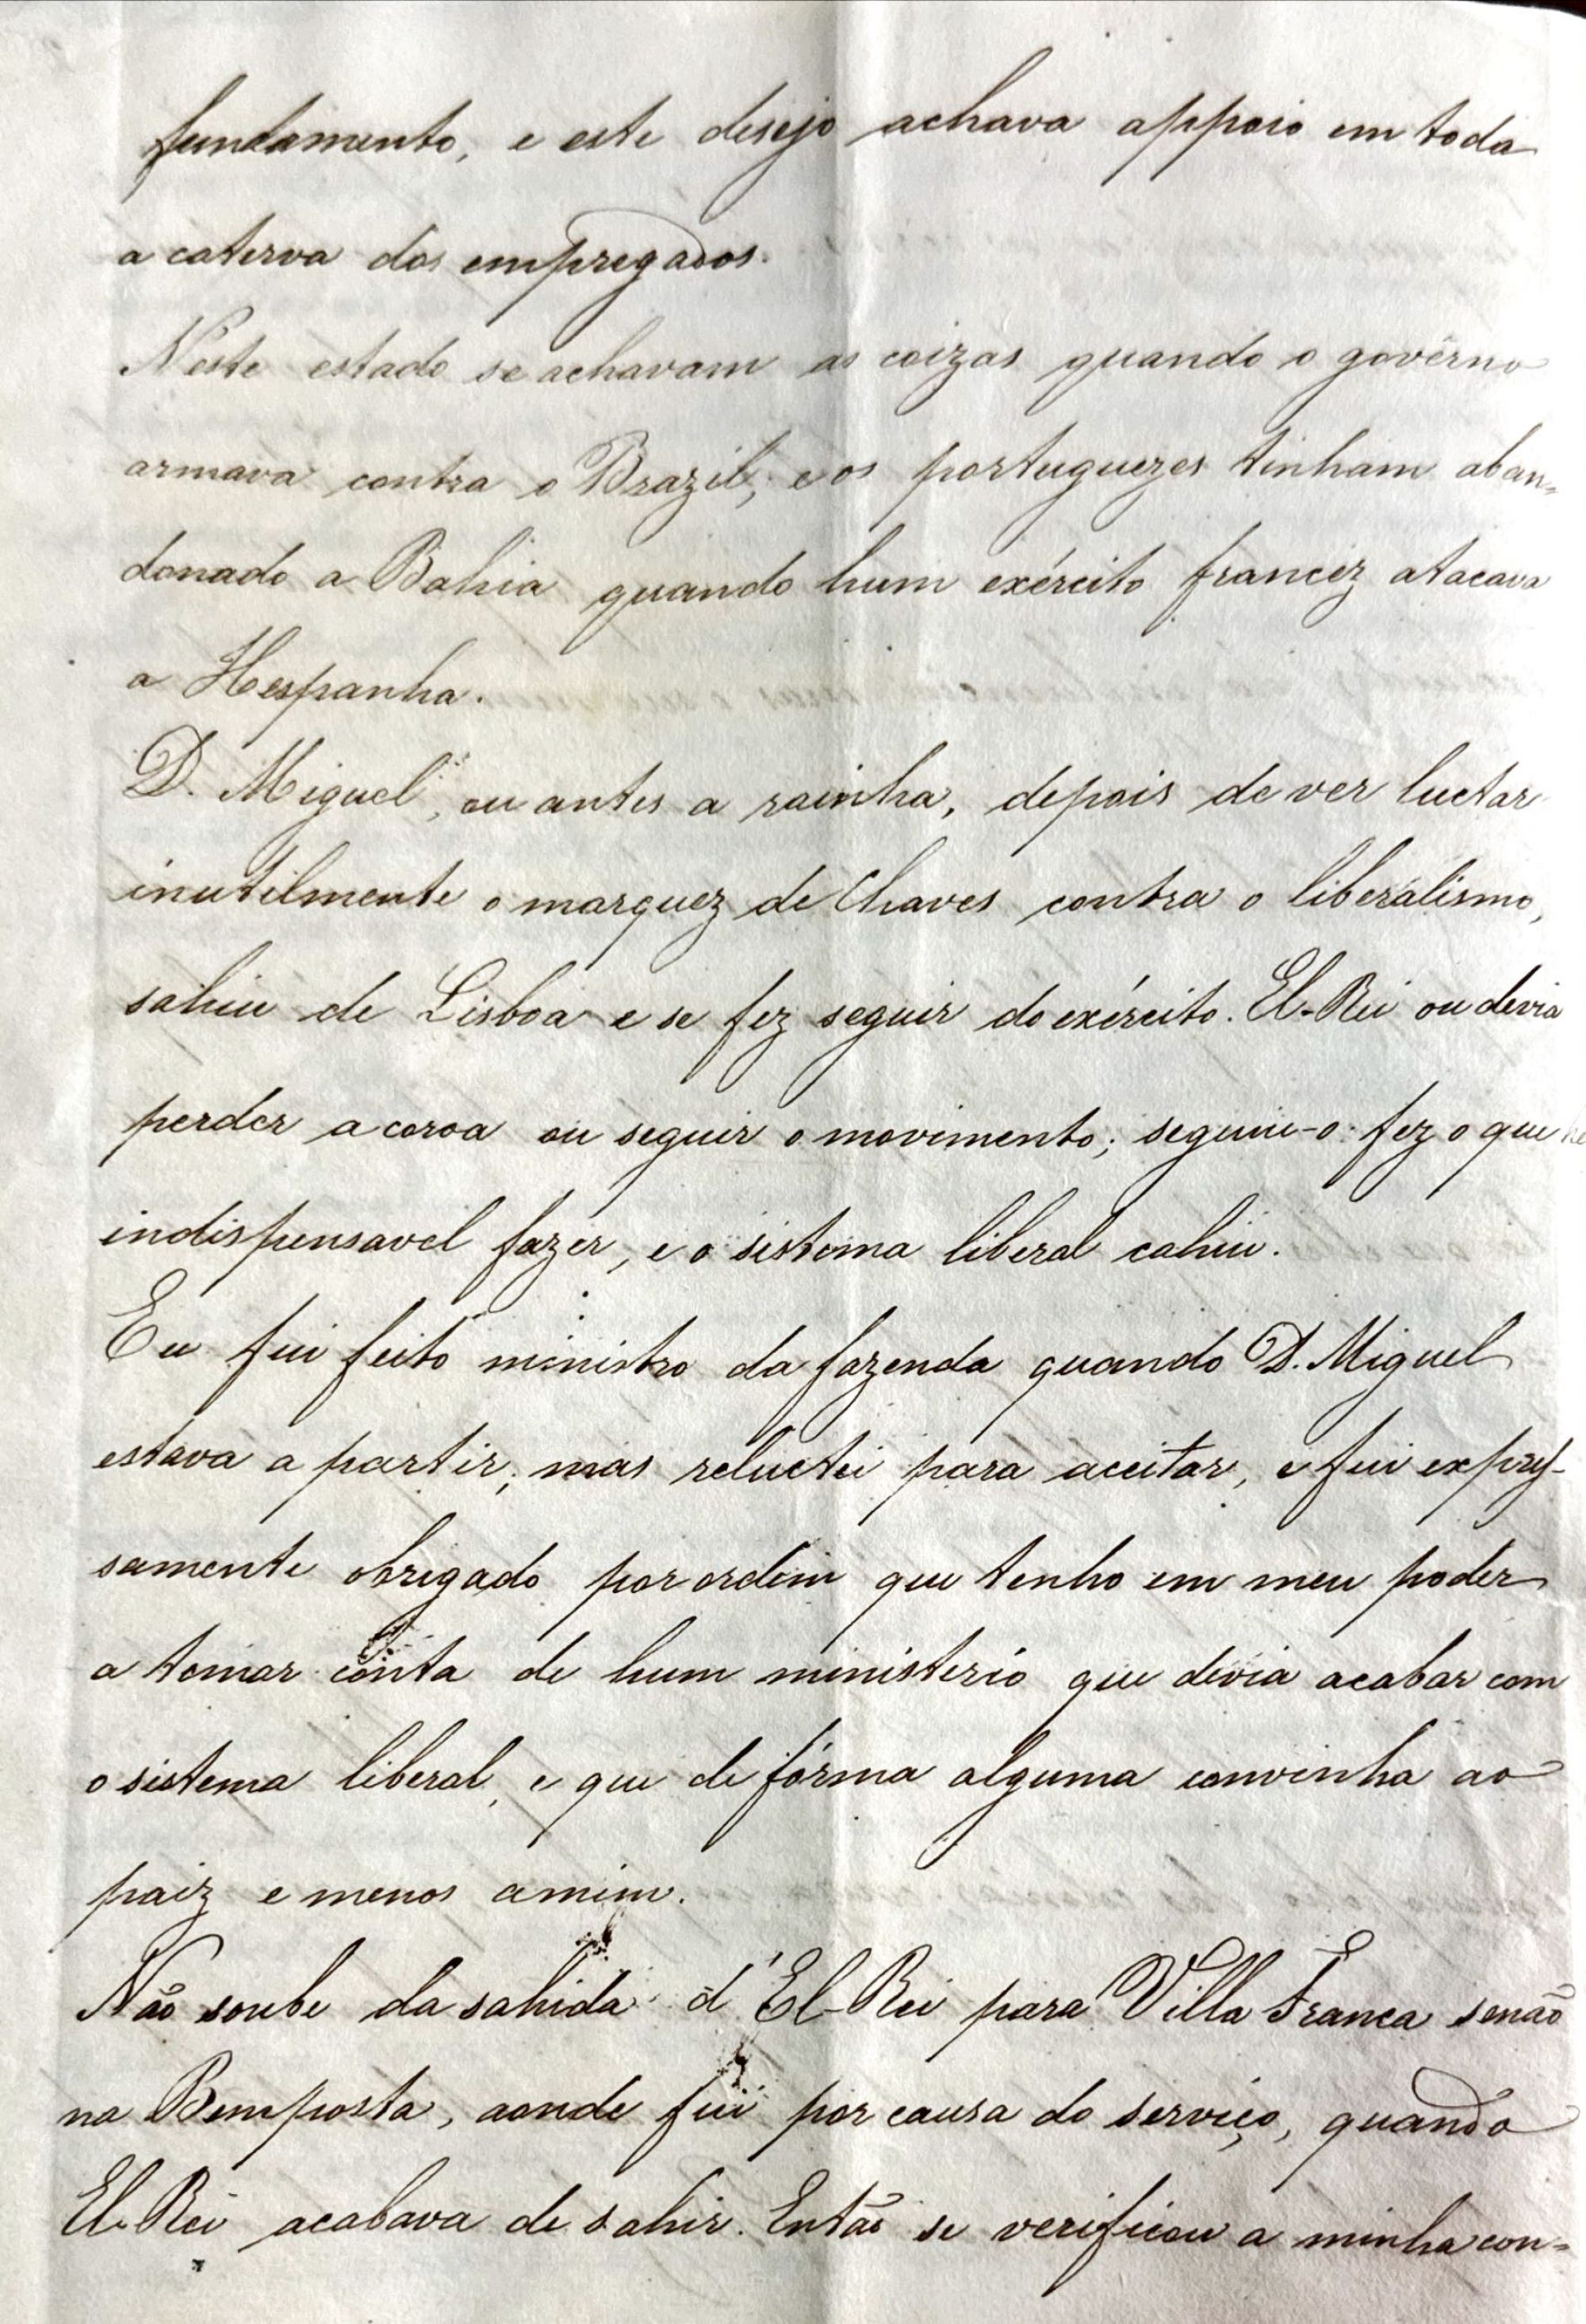 fundamento, e este desejo achava appoio em toda
a caterva dos empregados.
Neste estado se achavam as coizas quando o govêrno
armava contra o Brazil, e os portuguezes tinham aban-
donado a Bahia quando hum exército francez atacava
a Hespanha.
D. Miguel, ou antes a rainha, depois de ver luctar
inutilmente o marquez de Chaves contra o liberalismo,
sahiu de Lisboa e se fez seguir do exército. El-Rei ou devia
perder a coroa ou seguir o movimento; seguiu-o: fez o que
indispensavel fazer, e o sistema liberal cahiu.
Eu fui feito ministro da fazenda quando D. Miguel
estava a partir; mas reluctei para aceitar, e fui expres-
samente obrigado por ordem que tenho em meu poder
a tomar conta de hum ministerio que devia acabar com
o sistema liberal, e que de fórma alguma convinha ao
paiz e menos a mim.
Não soube da sahida d'El-Rei para Villa Franca senão
na Bemposta, aonde fui por causa do serviço, quando
El-Rei acabava de sahir. Então se verificou a minha con-